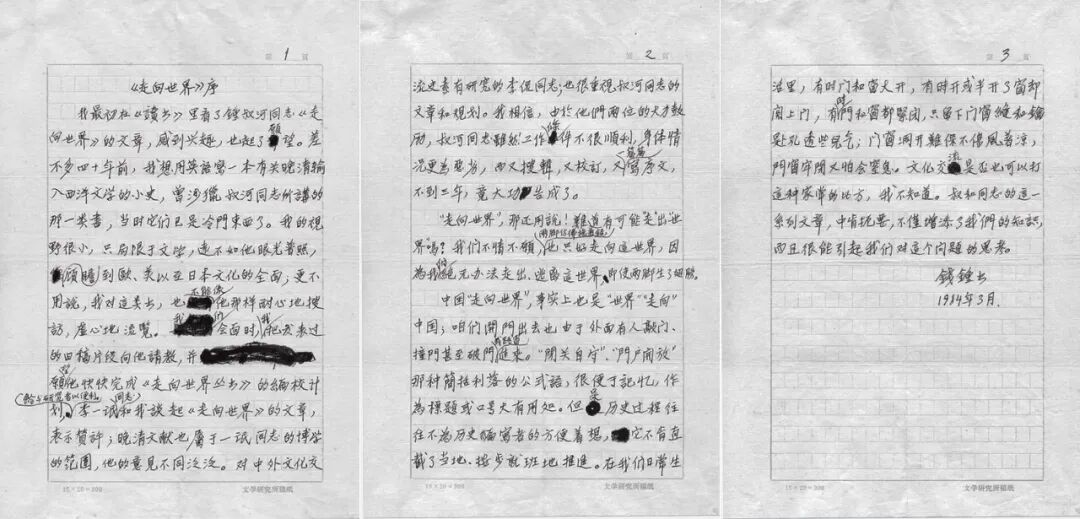 第 1 頁
《走向世界》序
我最初在《讀書》里看了鍾叔河同志《走
向世界》的文章，感到兴趣，也起了願望。差
不多四十年前，我想用英語寫一本有关晚清輸
入西洋文学的小史，曾涉獵叔河同志所講的
那一类書，当时它们已是冷門東西了。我的視
野很小，只局限于文学，遠不如他眼光普照，
顧瞻到歐、美以至日本文化的全面；更不
用說，我对這类书，也不能像他那样耐心地搜
訪，虚心地流覽。我们会面时，我把发表过
的旧稿片段向他請教，并
願他快快完成《走向世界丛书》的編校计
划，給与研究者以便利。李一氓同志和我談起《走向世界》的文章，
表示贊許；晚清文献也屬于一氓同志的博学
的范圍，他的意見不同泛泛。对中外文化交
15×20=300
文学研究所稿紙
第 2 頁
流史素有研究的李侃同志，也很重視叔河同志的
文章和規划。我相信，由於他們两位的大力鼓
励，叔河同志雖然工作條件不很順利，身体情
况更為惡劣，而又搜輯，又校訂，又寫序文，
不到三年，竟大功告成了。
“走向世界”，那还用說！難道有可能“走出”世
界嗎？我们不情不願，两脚仿佛拖着鐐，也只好走向這世界，因
為我們絕无办法走出、逃离這世界，即使两脚生了翅膀。
中国“走向世界”，事实上也是“世界”“走向”
中国；咱们開門出去也由于外面有人敲门、
撞門甚至破門進來。“閉关自守”、“門戶開放”
那种簡括利落的公式語，很便于記忆，作
為標題或口号大有用処。但是历史过程往
往不为历史编寫者的方便着想，它不肯直
截了当地、按步就班地推進。在我们日常生
15×20=300
文学研究所稿紙
第 3 頁
活里，有时门和窗大开，有时开或半开了窗却
闭上门，有时門和窗都緊閉，只留下门窗縫和鑰
匙孔透些兒气；门窗洞开難保不傷風着凉，
門窗牢閉又怕会窒息。文化交流是否也可以打
這种家常的比方，我不知道。叔河同志的這一
系列文章，中肯扼要，不僅增添了我們的知識，
而且很能引起我们对这个問題的思考。
錢鍾书
1984年3月。
15×20=300
文学研究所稿紙